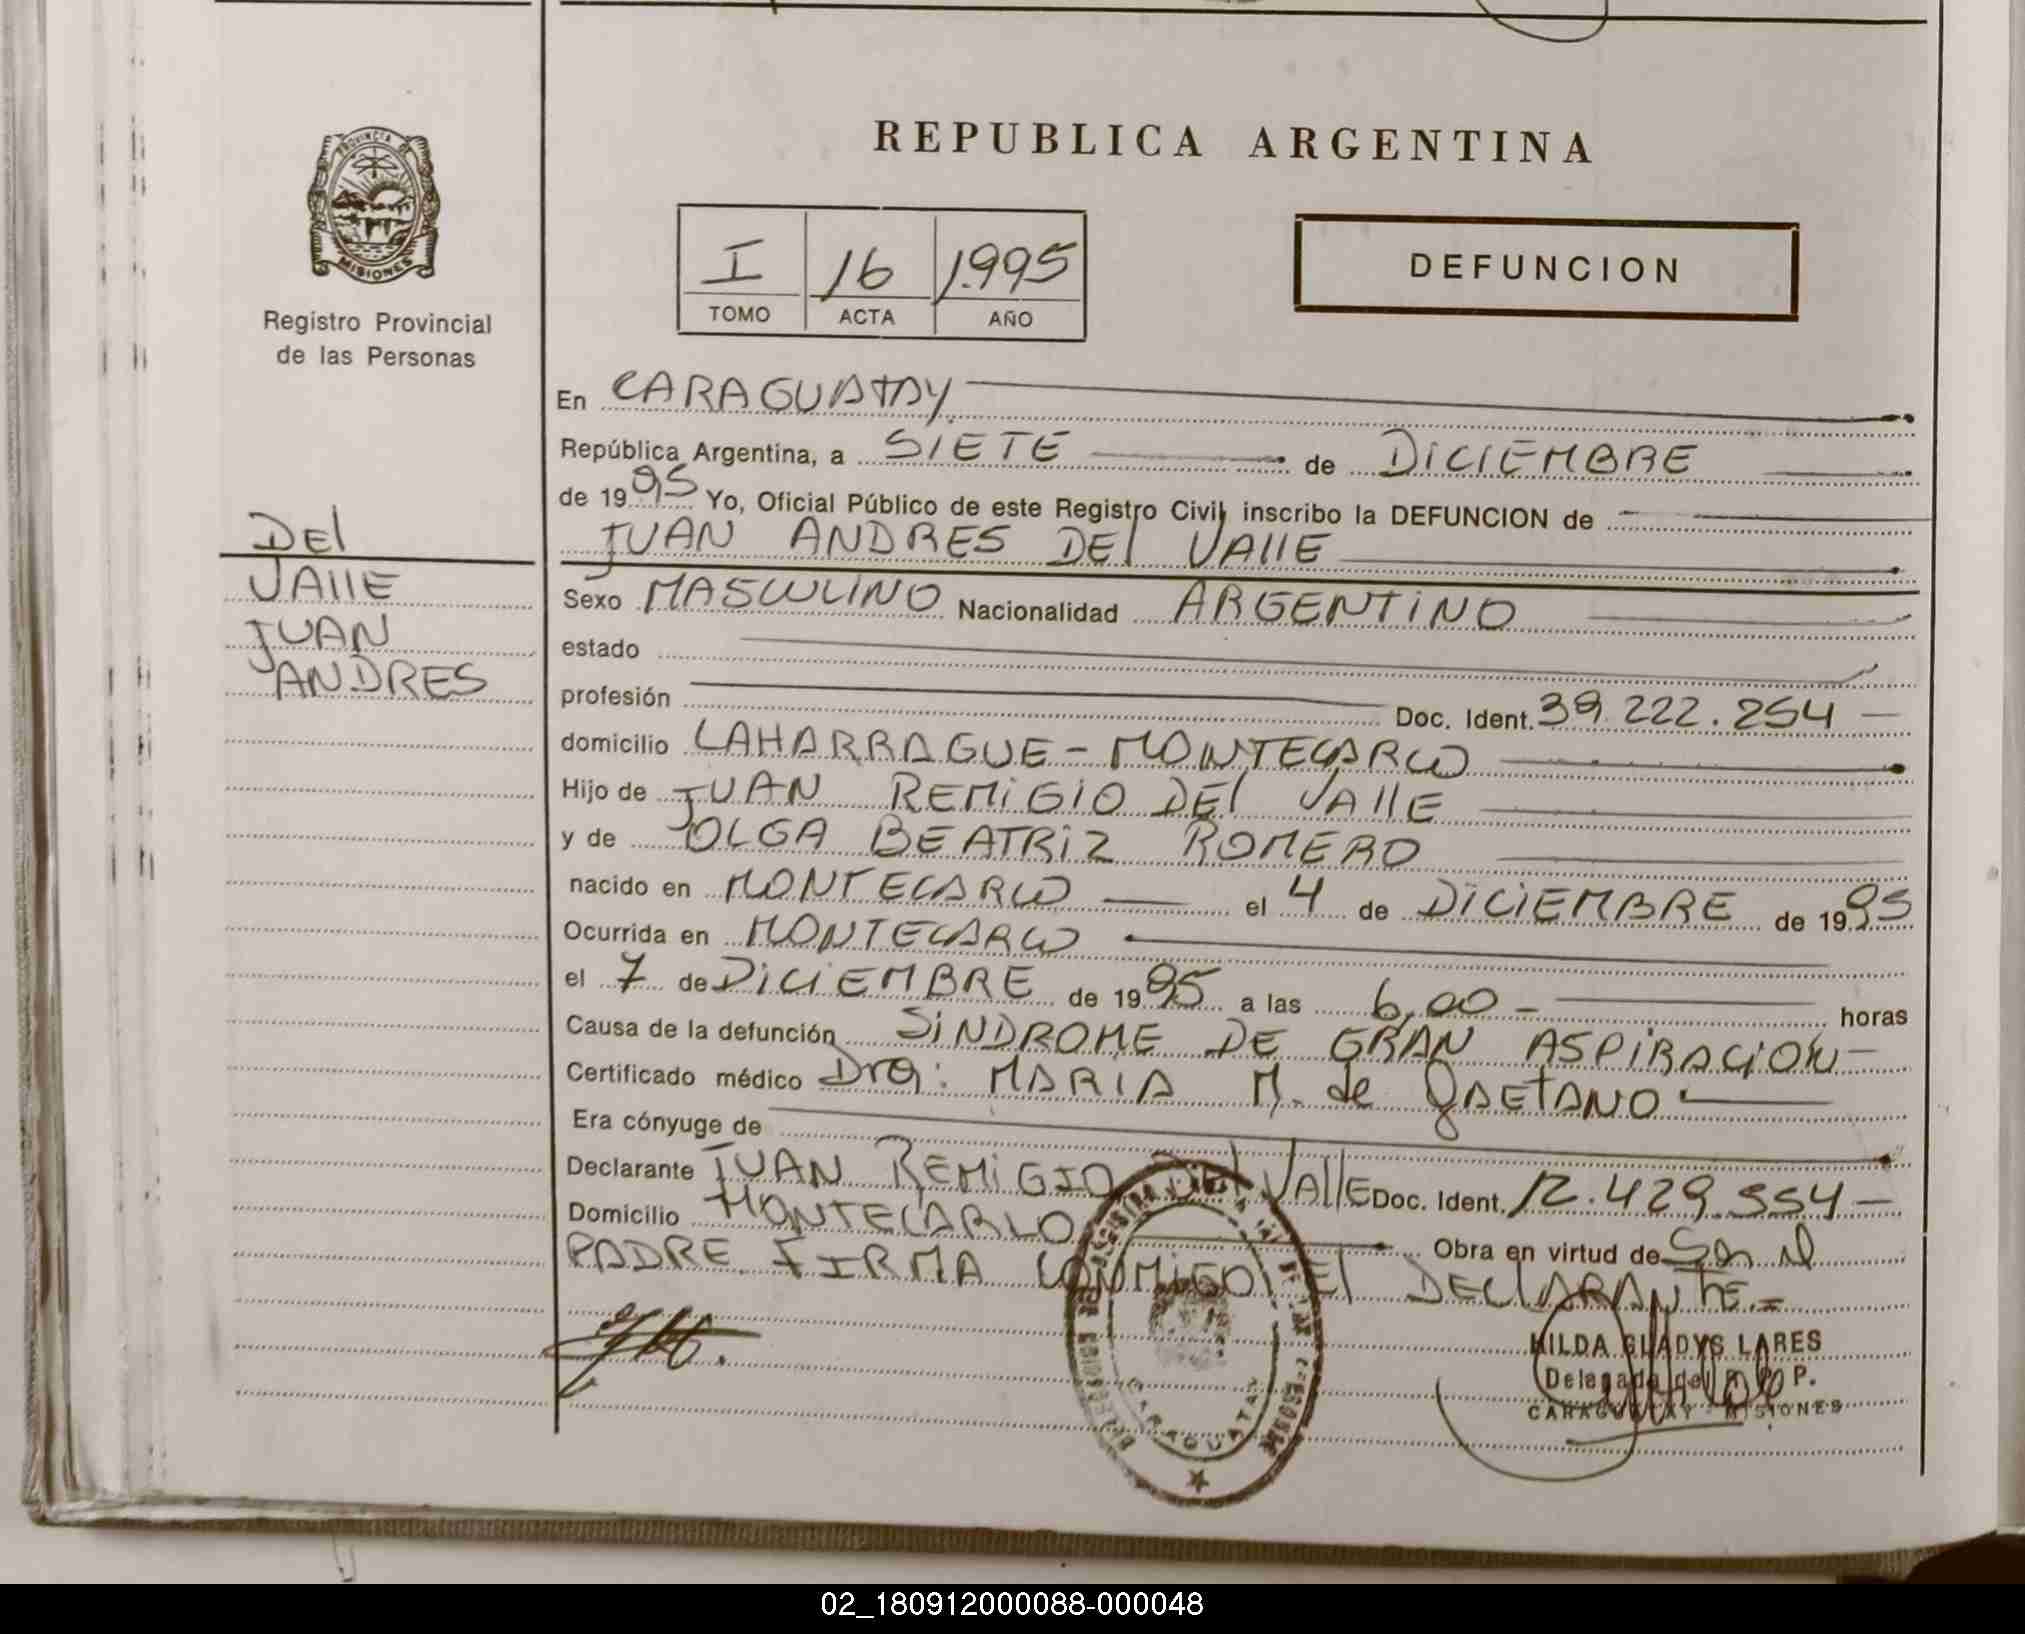 PROVINCIA
MISIONES
Registro Provincial
de las Personas
REPUBLICA ARGENTINA
I 16 1.995
TOMO ACTA AÑO
DEFUNCION
En CARAGUATAY
República Argentina, a SIETE de DICIEMBRE
de 1995 Yo, Oficial Público de este Registro Civil inscribo la DEFUNCION de
JUAN ANDRES DEl VAllE
DEl
VAllE
JUAN
ANDRES
Sexo MASCULINO Nacionalidad ARGENTINO
estado
profesión Doc. Ident. 39.222.254
domicilio LAHARRAGUE - MONTECARLO
Hijo de JUAN REMIGIO DEl VAllE
y de OLGA BEATRIZ ROMERO
nacido en MONTECARLO el 4 de DICIEMBRE de 1995
Ocurrida en MONTECARLO
el 7 de DICIEMBRE de 1995 a las 6,00 - horas
Causa de la defunción SINDROME DE GRAN ASPIRACIÓN
Certificado médico Dra: MARIA M. de GAETANO
Era cónyuge de
Declarante JUAN REMIGIO DEl VAllE Doc. Ident. 12.429.554
Domicilio MONTECARLO Obra en virtud de Ser el
PADRE FIRMA CONMIGO El DECLARANTE.=
CARAGUATAY
HILDA GLADYS LARES
Delegada del R. P. P.
CARAGUATAY - MISIONES
02_180912000088-000048